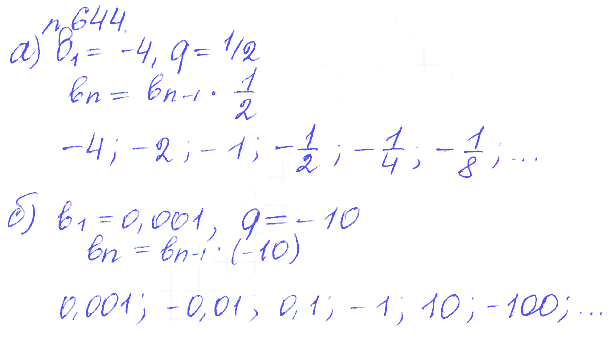 п 644.
а) b₁ = -4, q = 1/2
bn = bn-1 · 1/2
-4; -2; -1; -1/2; -1/4; -1/8; ...
б) b₁ = 0,001, q = -10
bn = bn-1 · (-10)
0,001; -0,01; 0,1; -1; 10; -100; ...